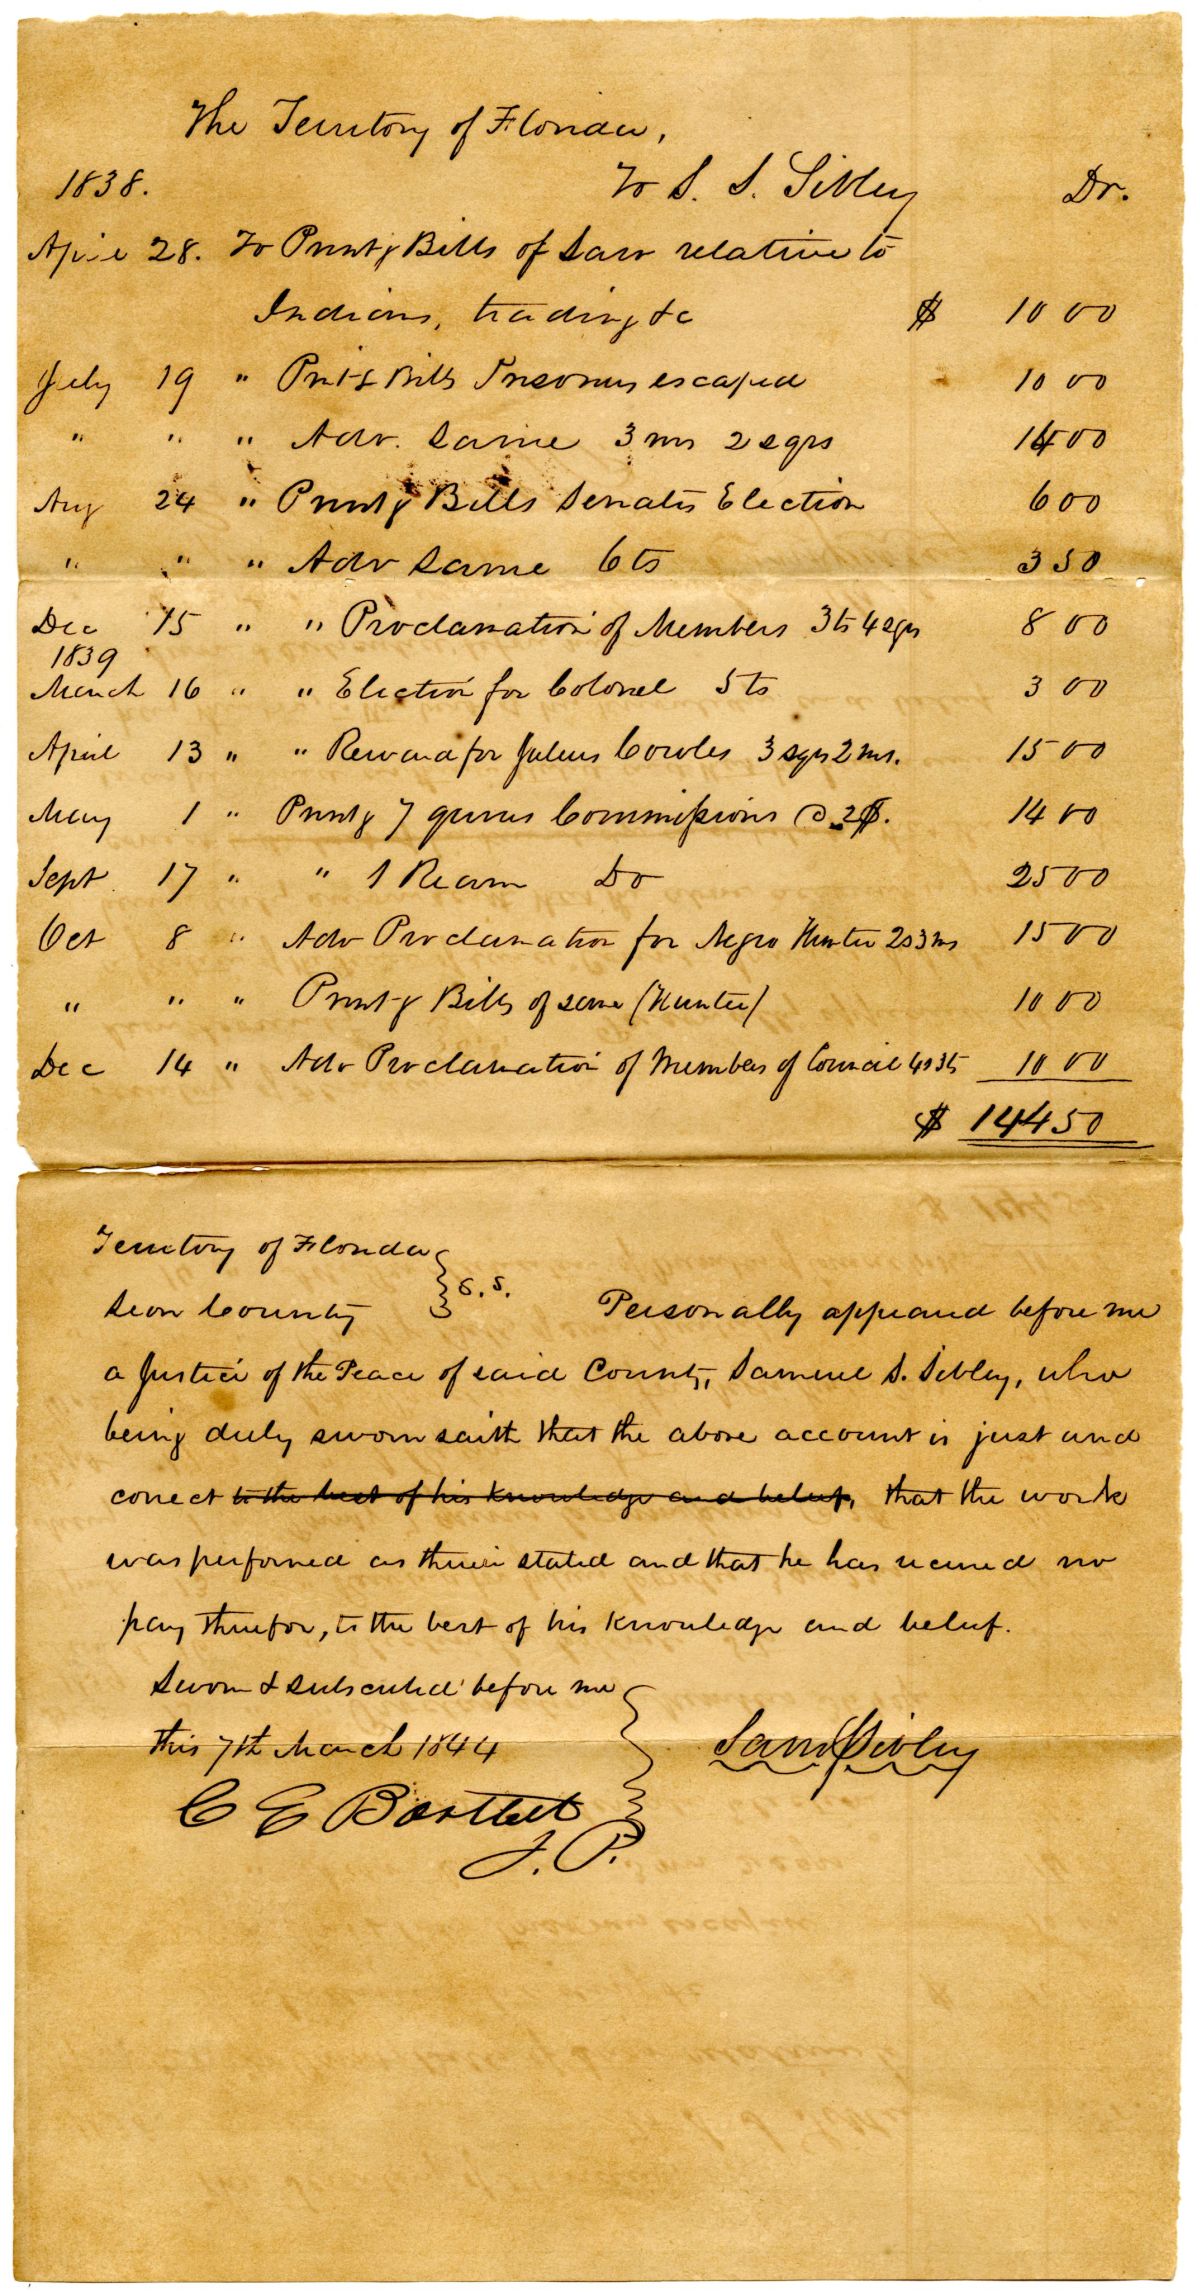 The Territory of Florida,
1838. To S. S. Sibley Dr.
April 28. To Printg Bills of Law relative to
Indians, trading &c $ 10 00
July 19 " Print g Bills Prisoners escaped 10 00
" " " Adv. same 3 ms 2 sqrs 14 00
Aug 24 " Printg Bills Senates Election 6 00
" " " Adv same 6 ts 3 50
Dec 15 " " Proclamation of Members 3 ts 4 sqrs 8 00
1839
March 16 " " Election for Colonel 5 ts 3 00
April 13 " " Reward for Julius Cowles 3 sqrs 2 ms. 15 00
May 1 " Printg 7 quires Commissions @ 2$. 14 00
Sept 17 " " 1 Ream Do 25 00
Oct 8 " Adv Proclamation for Negro Hunter 2s 3 ms 15 00
" " " Printg Bills of same (Hunter) 10 00
Dec 14 " Adv Proclamation of Members of Council 4s 3ts 10 00
$ 144 50
Territory of Florida
Leon County } S.S. Personally appeared before me
a Justice of the Peace of said County, Samuel S. Sibley, who
being duly sworn saith that the above account is just and
correct to the best of his knowledge and belief, that the work
was performed as therein stated and that he has received no
pay therefor, to the best of his knowledge and belief.
Sworn & subscribed before me
this 7th March 1844 } Saml S Sibley
C E Bartlett
J. P.